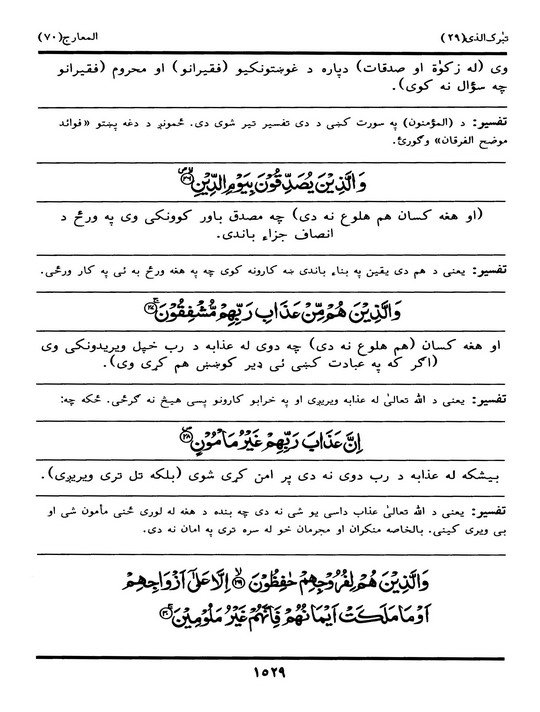 تبٰرک الذی (۲۹)
المعارج (۷۰)
وی (له زکوٰة او صدقات) دپاره د غوښتونکیو (فقیرانو) او محروم (فقیرانو
چه سؤال نه کوی).
تفسیر: د (المؤمنون) په سورت کښی د دی تفسیر تیر شوی دی. ځمونږ د دغه پښتو «فوائد
موضح الفرقان» وګورئ.
وَالَّذِيْنَ يُصَدِّقُوْنَ بِيَوْمِ الدِّيْنِ ۲۶
(او هغه کسان هم هلوع نه دی) چه مصدق باور کوونکی وی په ورځ د
انصاف جزاء باندی.
تفسیر: یعنی د هم دی یقین په بناء باندی ښه کارونه کوی چه په هغه ورځ به ئی په کار ورځی.
وَالَّذِيْنَ هُمْ مِّنْ عَذَابِ رَبِّهِمْ مُّشْفِقُوْنَ ۲۷
او هغه کسان (هم هلوع نه دی) چه دوی له عذابه د رب خپل ویریدونکی وی
(اګر که په عبادت کښی ئی ډیر کوښښ هم کړی وی).
تفسیر: یعنی د الله تعالیٰ له عذابه ویریږی او په خرابو کارونو پسی هیڅ نه ګرځی. ځکه چه:
اِنَّ عَذَابَ رَبِّهِمْ غَيْرُ مَاْمُوْنٍ ۲۸
بیشکه له عذابه د رب دوی نه دی پر امن کړی شوی (بلکه تل تری ویریږی).
تفسیر: یعنی د الله تعالیٰ عذاب داسی یو شی نه دی چه بنده د هغه له لوری ځنی مأمون شی او
بی ویری کینی. بالخاصه منکران او مجرمان خو له سره تری په امان نه دی.
وَالَّذِيْنَ هُمْ لِفُرُوْجِهِمْ حٰفِظُوْنَ ۲۹ اِلَّا عَلٰٓى اَزْوَاجِهِمْ
اَوْ مَا مَلَكَتْ اَيْمَانُهُمْ فَاِنَّهُمْ غَيْرُ مَلُوْمِيْنَ ۳۰
۱۵۲۹